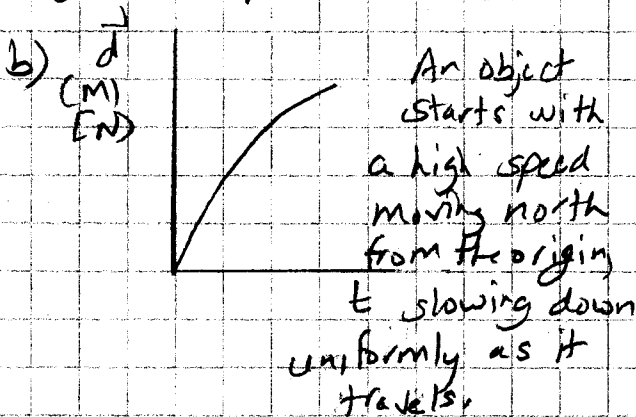 b) d⃗
(M)
[N]
An object
starts with
a high speed
moving north
from the origin,
t slowing down
uniformly as it
travels.